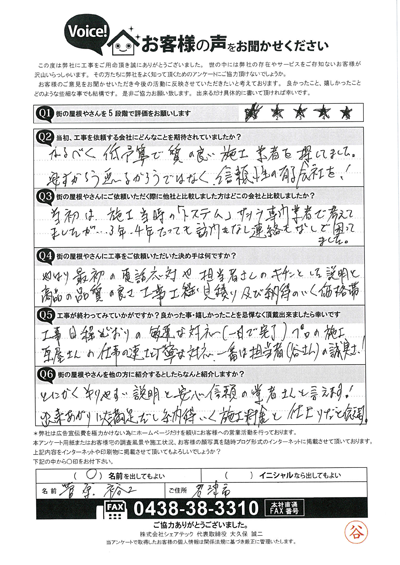 Voice!
お客様の声をお聞かせください
この度は弊社に工事をご用命頂き誠にありがとうございました。世の中には弊社の存在やサービスをご存知ないお客様が
沢山いらっしゃいます。その方たちに弊社をよく知って頂くためのアンケートにご協力頂けないでしょうか。
お客様のご意見をお聞かせいただき今後の活動に反映させていただきたいと考えております。良かったこと、嬉しかったこと
どのような些細な事でも結構です。是非ご協力お願い致します。出来るだけ具体的に書いて頂ければ幸いです。
Q1 街の屋根やさんを5段階で評価をお願いします
★ ★ ★ ★ ★
Q2 当初、工事を依頼する会社にどんなことを期待されていましたか?
なるべく低予算で質の良い施工業者を探してました。
安すかろう悪るかろうではなく、信頼性の有る会社を!
Q3 街の屋根やさんにご依頼いただく際に他社と比較しました方はどこの会社と比較しましたか?
当初は、施工当時の
専門業者で考えて
ましたが…3年、4年たっても訪門もなし連絡もなしで困って
ました。
Q4 街の屋根やさんに工事をご依頼いただいた決め手は何ですか?
やはり最初の電話応対や担当者さんのキチンとした説明と
商品の品質の良さ工事工程見積り及び納得のいく価格帯
Q5 工事が終わってみていかがですか?良かった事・嬉しかったことを忌憚なく頂戴出来ましたら幸いです
工事日程どおりの敏速な対応(一日で完了)プロの施工
瓦屋さんの仕事の速さ丁寧な対応、一番は担当者(谷さん)の誠実さ!
Q6 街の屋根やさんを他の方に紹介するとしたらなんと紹介しますか?
とにかく判りやすい説明と安心信頼の業者さんと言えます!
出来あがりに大満足だし納得いく施工料金と仕上りだと
*弊社は広告宣伝費を極力かけない為にホームページだけを頼りにお客様への営業活動を行っております。
本アンケート用紙またはお客様宅の調査風景や施工状況、お客様の顔写真を随時ブログ形式のインターネットに掲載させて頂いております。
上記内容をインターネットや印刷物に掲載させて頂いてもよろしいでしょうか?
下記の中から○印をお付け下さい。
(○)名前を出してもよい ( )イニシャルなら出してもよい
名前 菅原裕二 ご住所 君津市
FAX 0438-38-3310 本社直通 FAX番号
ご協力ありがとうございました。
株式会社シェアテック 代表取締役 大久保 誠二
当アンケートで取得したお客様の個人情報は関係法規に基づき厳正に管理いたします。
谷